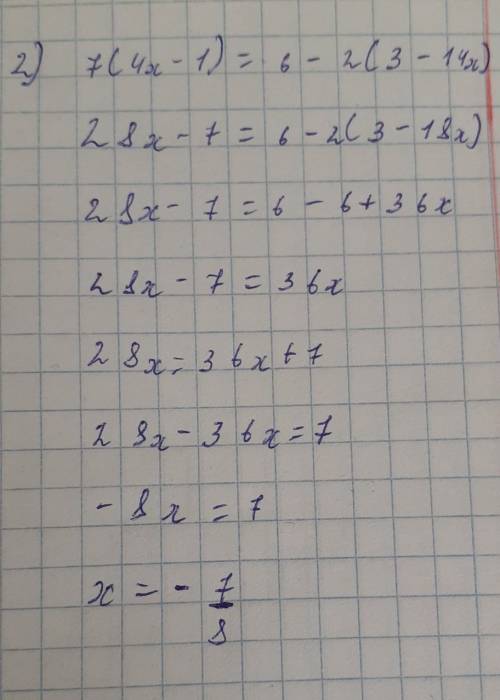 2) 7(4x - 1) = 6 - 2(3 - 14x)
28x - 7 = 6 - 2(3 - 18x)
28x - 7 = 6 - 6 + 36x
28x - 7 = 36x
28x = 36x + 7
28x - 36x = 7
- 8x = 7
x = - 7/8